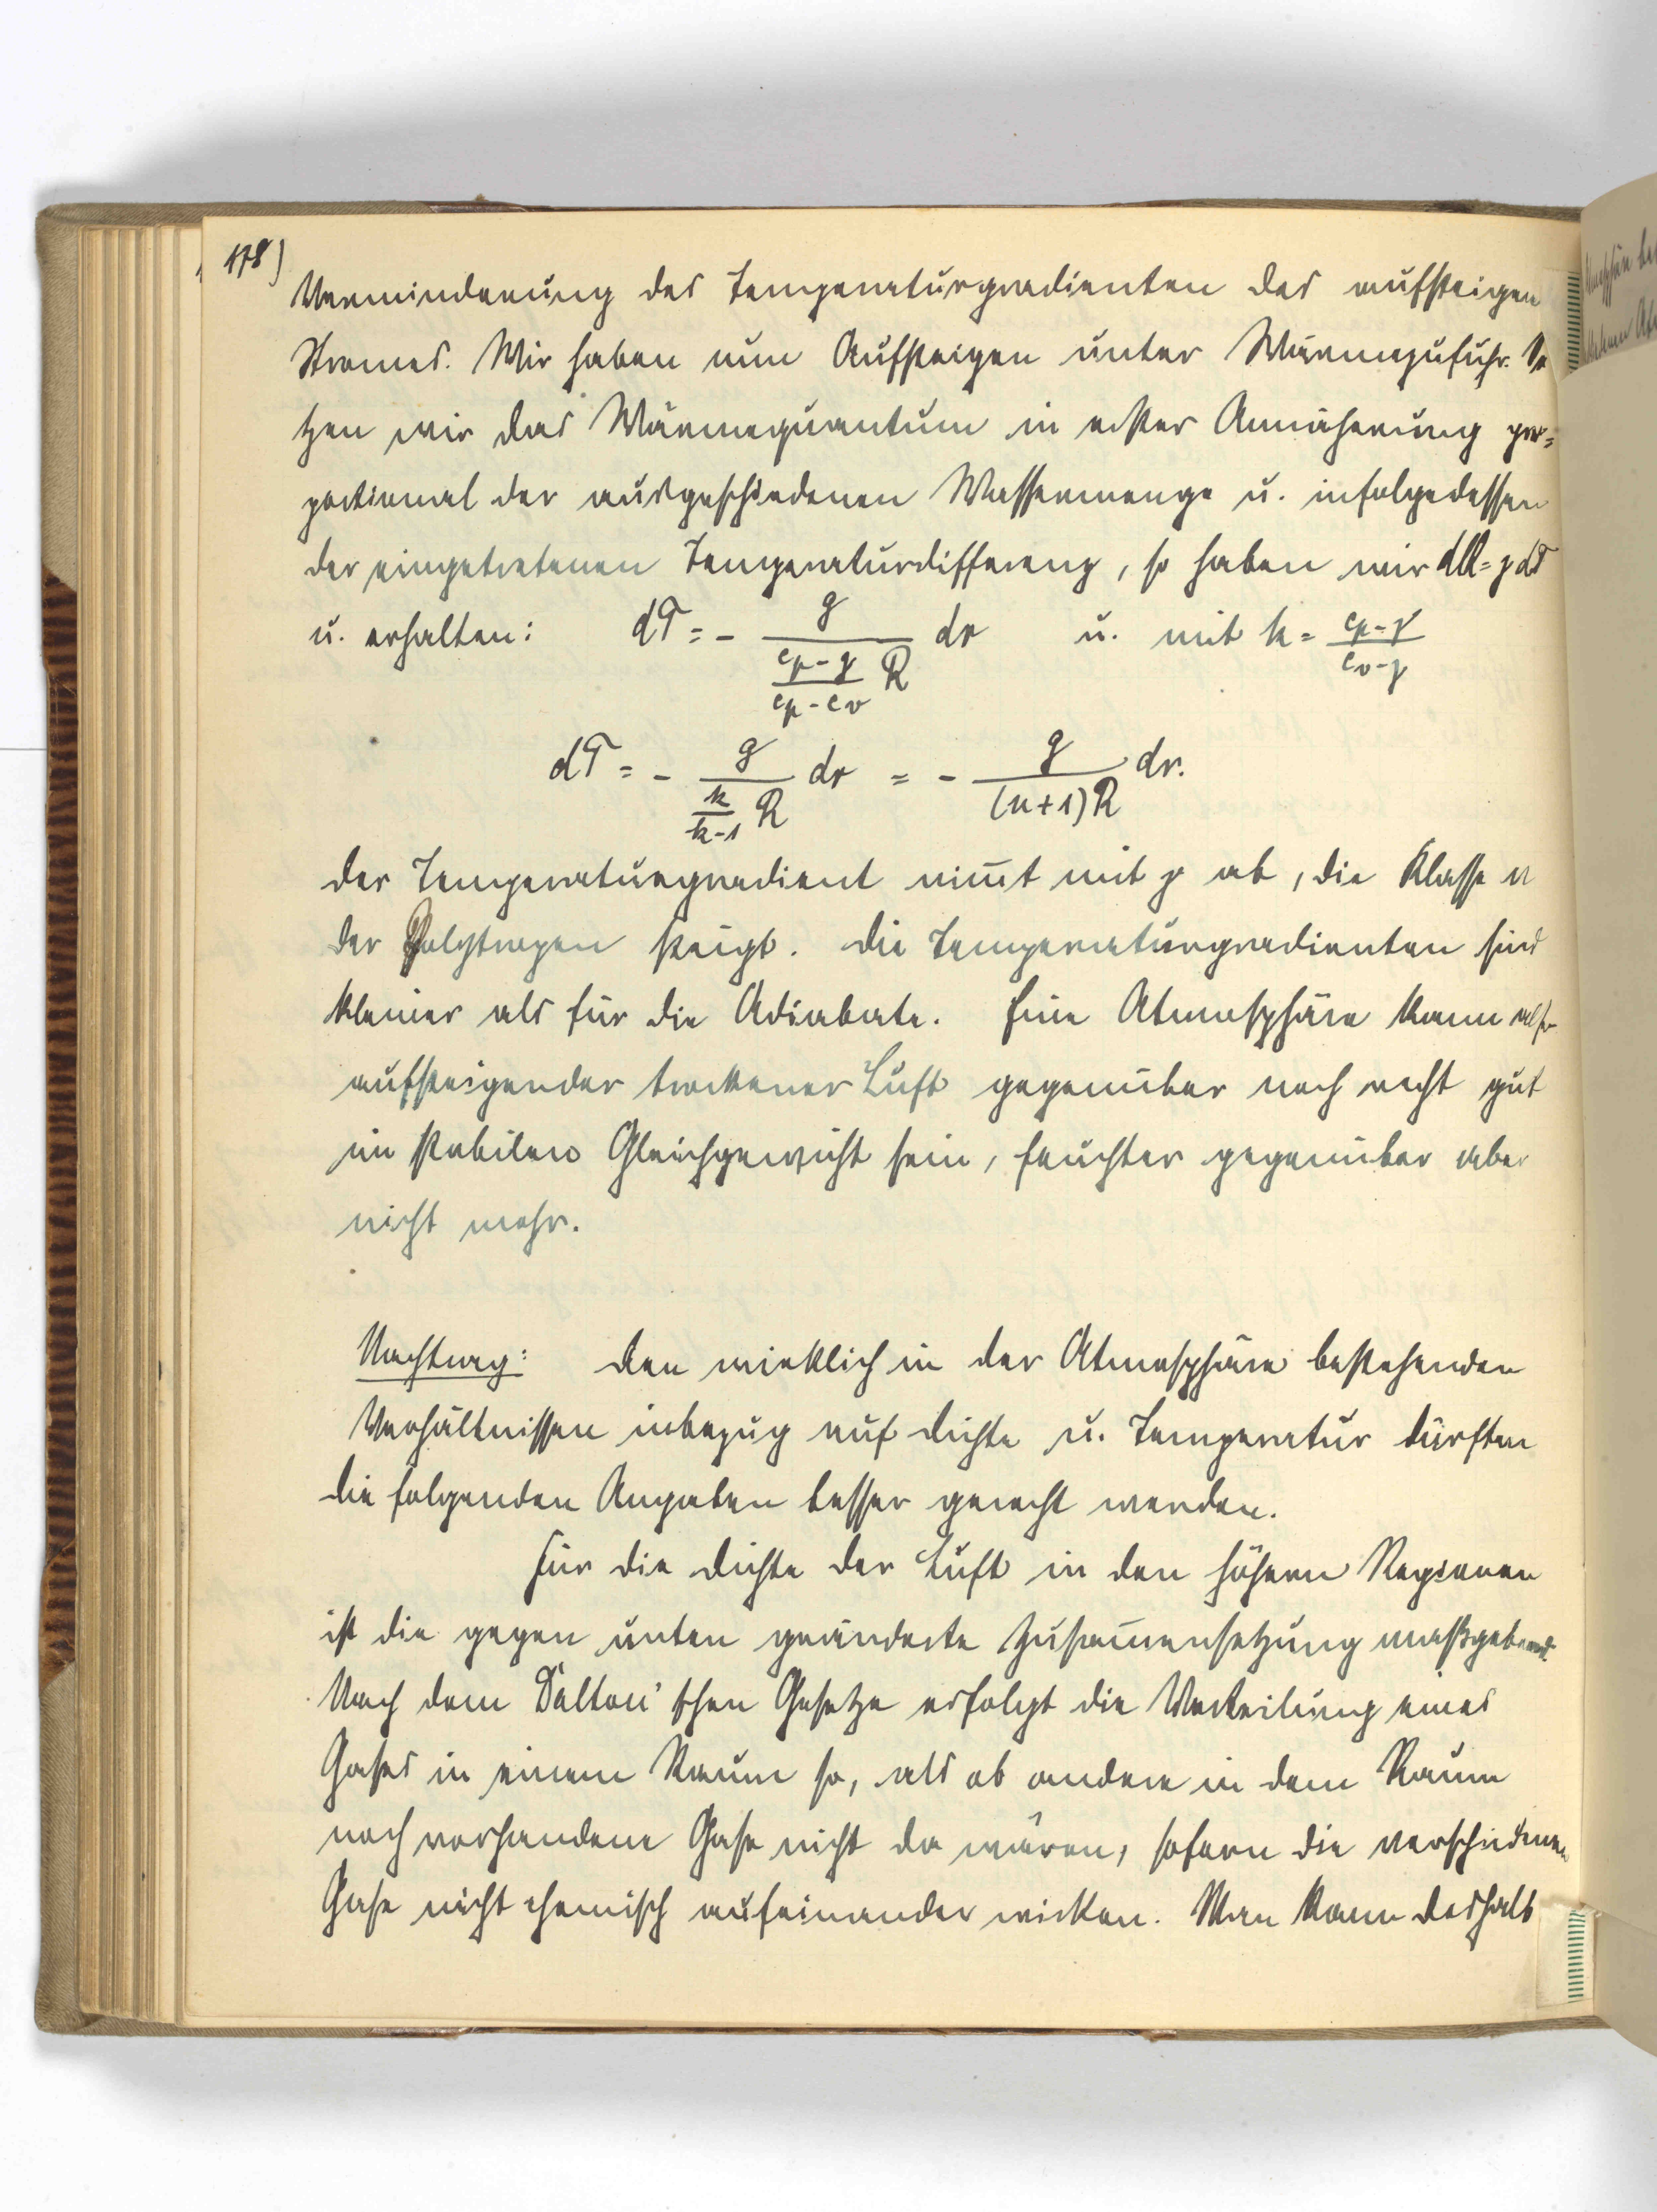 178)
Verminderung des Temperaturgradienten des aufsteigen
Stromes. Wir haben nun Aufsteigen unter Wärmezufuhr. Se
tzen wir das Wärmequantum in erster Annäherung pro=
portional der ausgeschiedenen Wassermenge u. infolgedessen
der eingetretenen Temperaturdifferenz, so haben wir dQ = γ dT
u. erhalten: dT = - g / ((cp-γ)/(cp-cv) R) dr u. mit k = (cp-γ)/(cv-γ)
dT = - g / (k/(k-1) R) dr = - g / ((n+1)R) dr.
Der Temperaturgradient nim̅t mit γ ab, die Klasse n
der Polytropen steigt. Die Temperaturgradienten sind
kleiner als für die Adiabate. Eine Atmosphäre kann also
aufsteigender trockener Luft gegenüber noch recht gut
im stabilen Gleichgewicht sein, feuchter gegenüber aber
nicht mehr.
Nachtrag: Den wirklich in der Atmosphäre bestehenden
Verhältnissen inbezug auf Dichte u. Temperatur dürften
die folgenden Angaben besser gerecht werden.
Für die Dichte der Luft in den höhern Regionen
ist die gegen unten geänderte Zusam̅ensetzung maßgebend.
Nach dem Dalton'schen Gesetze erfolgt die Verteilung eines
Gases in einem Raum so, als ob andere in dem Raum
noch vorhandene Gase nicht da wären, sofern die verschiedenen
Gase nicht chemisch aufeinander wirken. Man kann deshalb